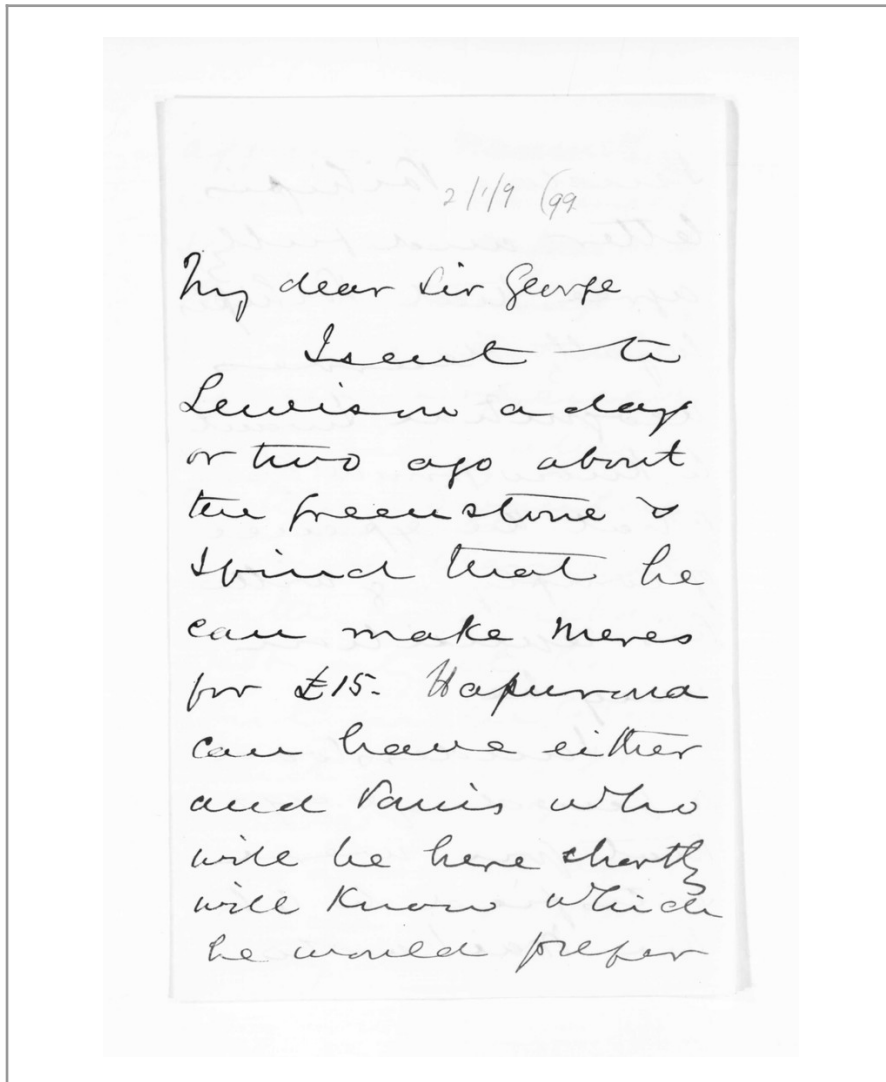 2/1/9 (99
My dear Sir George
I sent to
Lewisson a day
or two ago about
the greenstone &
I find that he
can make meres
for £15. Hapurona
can have either
and Parris who
will be here shortly
will know which
he would prefer